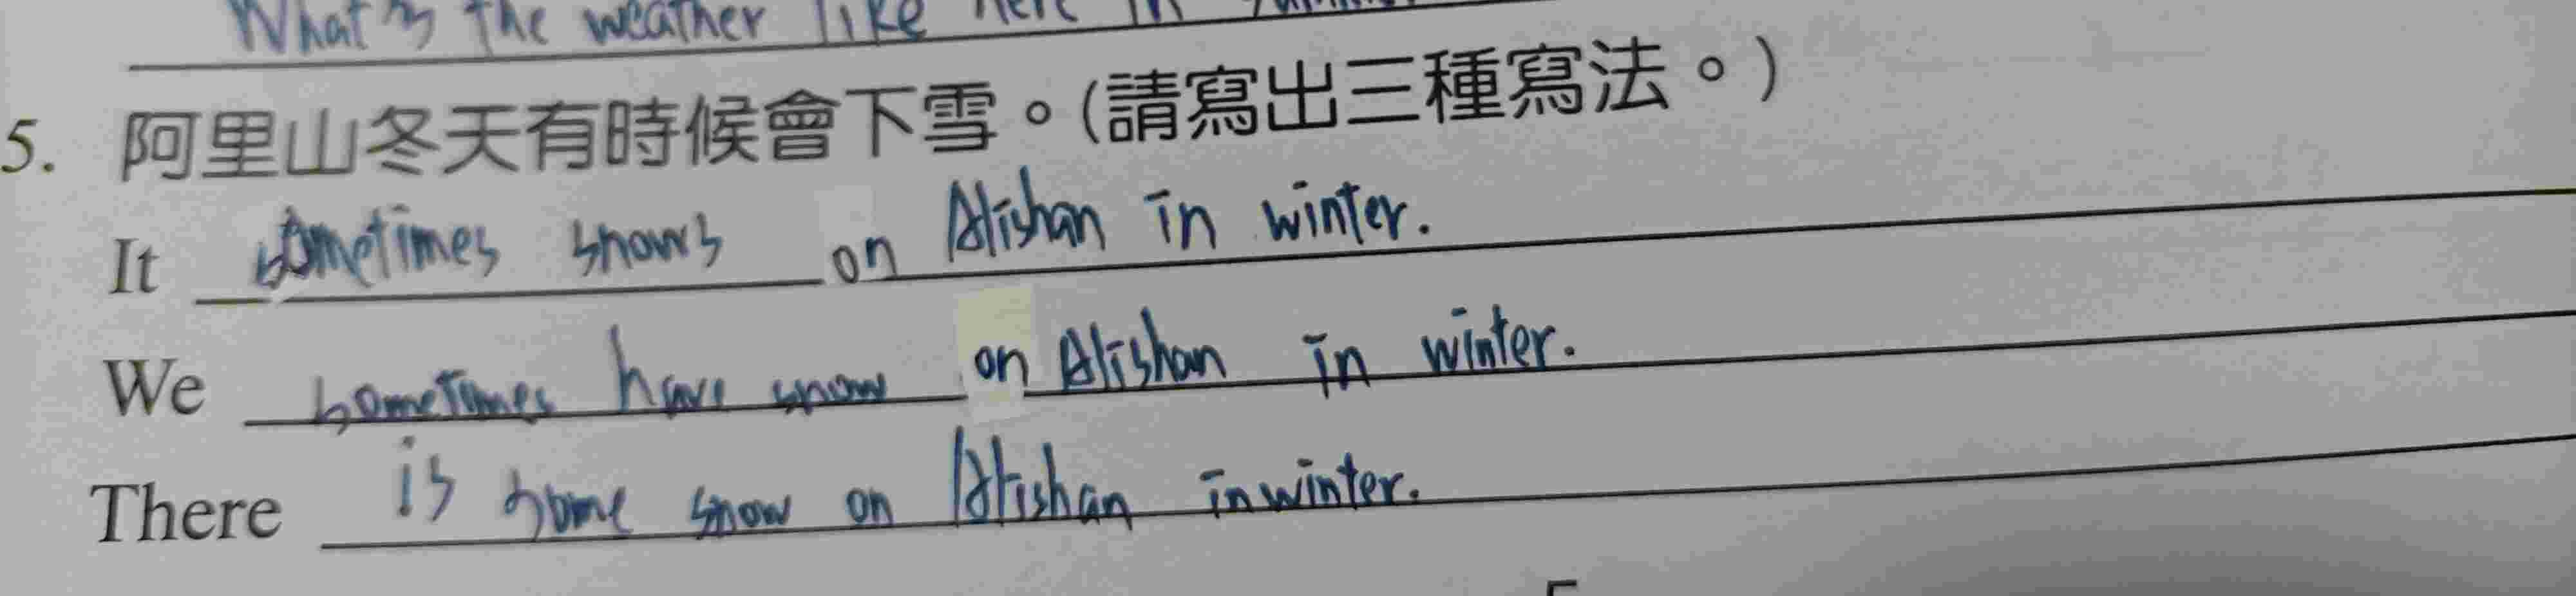 What's the weather like here in summer
5. 阿里山冬天有時候會下雪。(請寫出三種寫法。)
It sometimes snows on Alishan in winter.
We sometimes have snow on Alishan in winter.
There is some snow on Alishan in winter.